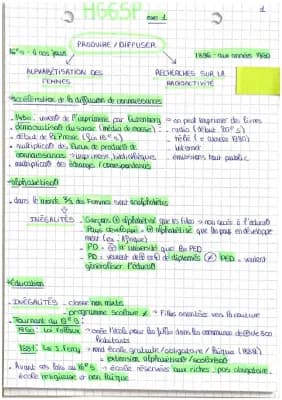 HGGSP axe 1
1
PRODUIRE / DIFFUSER
16e s - à nos jours
1896 - aux années 1980
ALPHABÉTISATION DES FEMMES
RECHERCHES SUR LA RADIOACTIVITÉ
accélération de la diffusion de connaissances
1450 : invent° de l'imprimerie par Gutenberg → on peut imprimer des livres
démocratisat° du savoir (média de masse) : . radio (début 20e s)
début de la Presse (fin 16e s)
télé (= années 1950)
multiplicat° des lieux de product° de
. internet
connaissances → imprimeurs, bibliothèques
. émissions tout public
multiplicat° des échanges / correspondances
alphabétisat°
dans le monde 2/3 des femmes sont analphabètes
INÉGALITÉS
Garçons ⊕ alphabétisé que les filles → non accès à l'éducat°
Pays développé = ⊕ alphabétisé que les pays en développement (ex : Afrique)
PD = ⊕ d'université que les PED
généraliser l'éducat°
Éducation
INÉGALITÉS - classe non mixte
programme scolaire ≠ → filles orientées vers la couture
Tournant du 19e s :
1850 : Loi Falloux → crée l'école pour les filles dans les communes de ⊕ de 800 habitants
1881 : lois J. Ferry → rend école gratuite / obligatoire / laïque (1882)
↳ extension alphabétisat° / scolarisat°
Avant ces lois au 16e s → écoles réservées aux riches, pas obligatoire,
école religieuse et non laïque